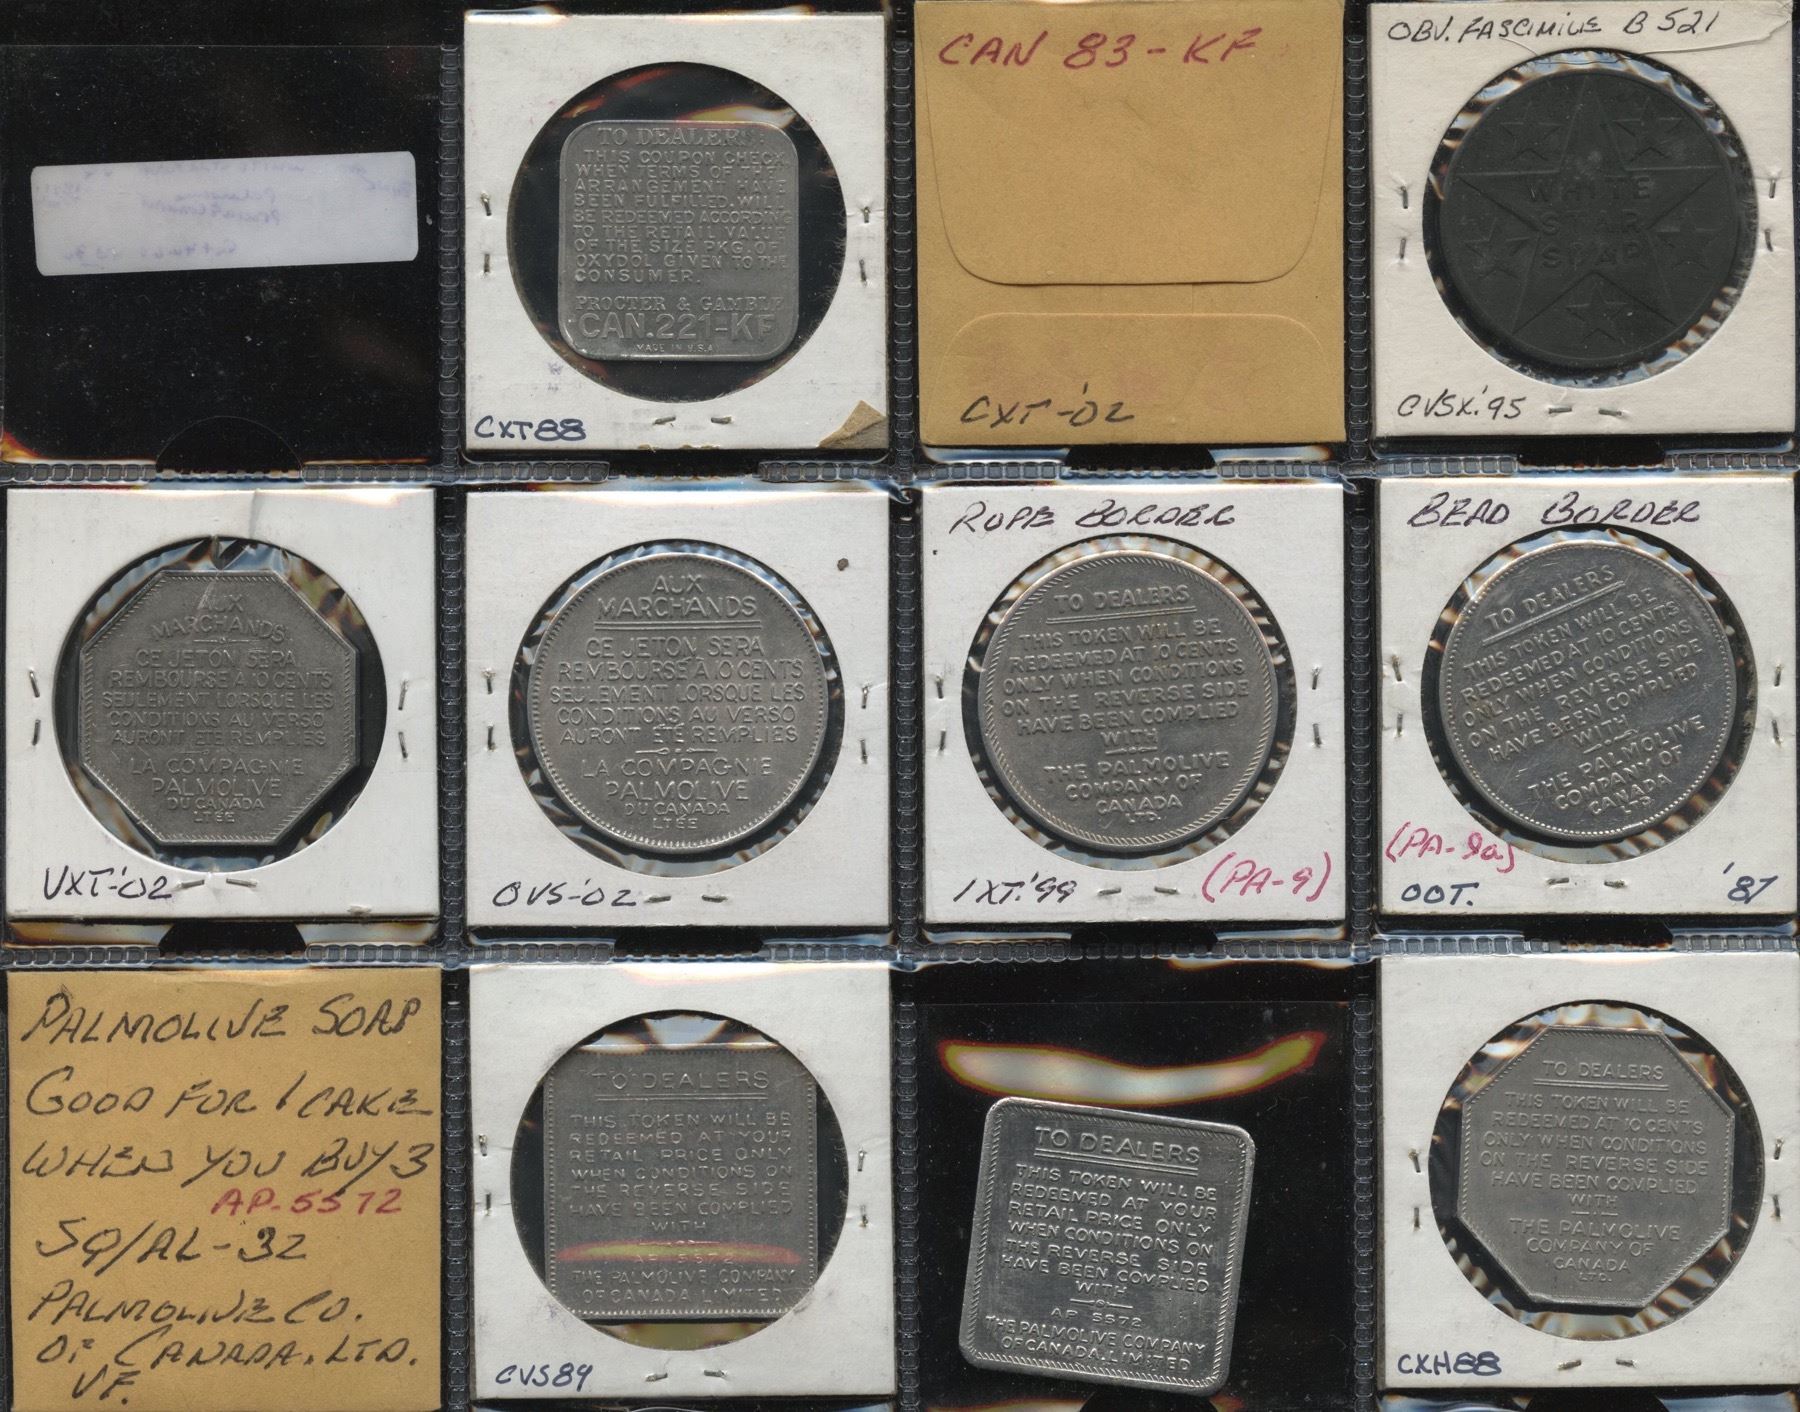 TO DEALERS:
THIS COUPON CHECK
WHEN TERMS OF THE
ARRANGEMENT HAVE
BEEN FULFILLED, WILL
BE REDEEMED ACCORDING
TO THE RETAIL VALUE
OF THE SIZE PKG. OF
OXYDOL GIVEN TO THE
CONSUMER.
PROCTER & GAMBLE
CAN.221-KF
MADE IN U.S.A.
CXT88
CAN 83-KF
CXT-'02
OBV. FASCIMILE B521
WHITE
STAR
SOAP
CVSX.'95
AUX
MARCHANDS
CE JETON SERA
REMBOURSÉ A 10 CENTS
SEULEMENT LORSQUE LES
CONDITIONS AU VERSO
AURONT ÉTÉ REMPLIES
LA COMPAGNIE
PALMOLIVE
DU CANADA
LTÉE
VXT-'02
AUX
MARCHANDS
CE JETON SERA
REMBOURSÉ A 10 CENTS
SEULEMENT LORSQUE LES
CONDITIONS AU VERSO
AURONT ÉTÉ REMPLIES
LA COMPAGNIE
PALMOLIVE
DU CANADA
LTÉE
OVS-'02
ROPE BORDER
TO DEALERS
THIS TOKEN WILL BE
REDEEMED AT 10 CENTS
ONLY WHEN CONDITIONS
ON THE REVERSE SIDE
HAVE BEEN COMPLIED
WITH
THE PALMOLIVE
COMPANY OF
CANADA
LTD.
1XT.'99 (PA-9)
BEAD BORDER
TO DEALERS
THIS TOKEN WILL BE
REDEEMED AT 10 CENTS
ONLY WHEN CONDITIONS
ON THE REVERSE SIDE
HAVE BEEN COMPLIED
WITH
THE PALMOLIVE
COMPANY OF
CANADA
LTD
(PA-9a)
OOT. '87
PALMOLIVE SOAP
GOOD FOR 1 CAKE
WHEN YOU BUY 3
AP-5572
SQ/AL-32
PALMOLIVE CO.
OF CANADA. LTD.
VF.
TO DEALERS
THIS TOKEN WILL BE
REDEEMED AT YOUR
RETAIL PRICE ONLY
WHEN CONDITIONS ON
THE REVERSE SIDE
HAVE BEEN COMPLIED
WITH
AP 5572
THE PALMOLIVE COMPANY
OF CANADA LIMITED
CVS89
TO DEALERS
THIS TOKEN WILL BE
REDEEMED AT YOUR
RETAIL PRICE ONLY
WHEN CONDITIONS ON
THE REVERSE SIDE
HAVE BEEN COMPLIED
WITH
AP 5572
THE PALMOLIVE COMPANY
OF CANADA, LIMITED
TO DEALERS
THIS TOKEN WILL BE
REDEEMED AT 10 CENTS
ONLY WHEN CONDITIONS
ON THE REVERSE SIDE
HAVE BEEN COMPLIED
WITH
THE PALMOLIVE
COMPANY OF
CANADA
LTD.
CXH88